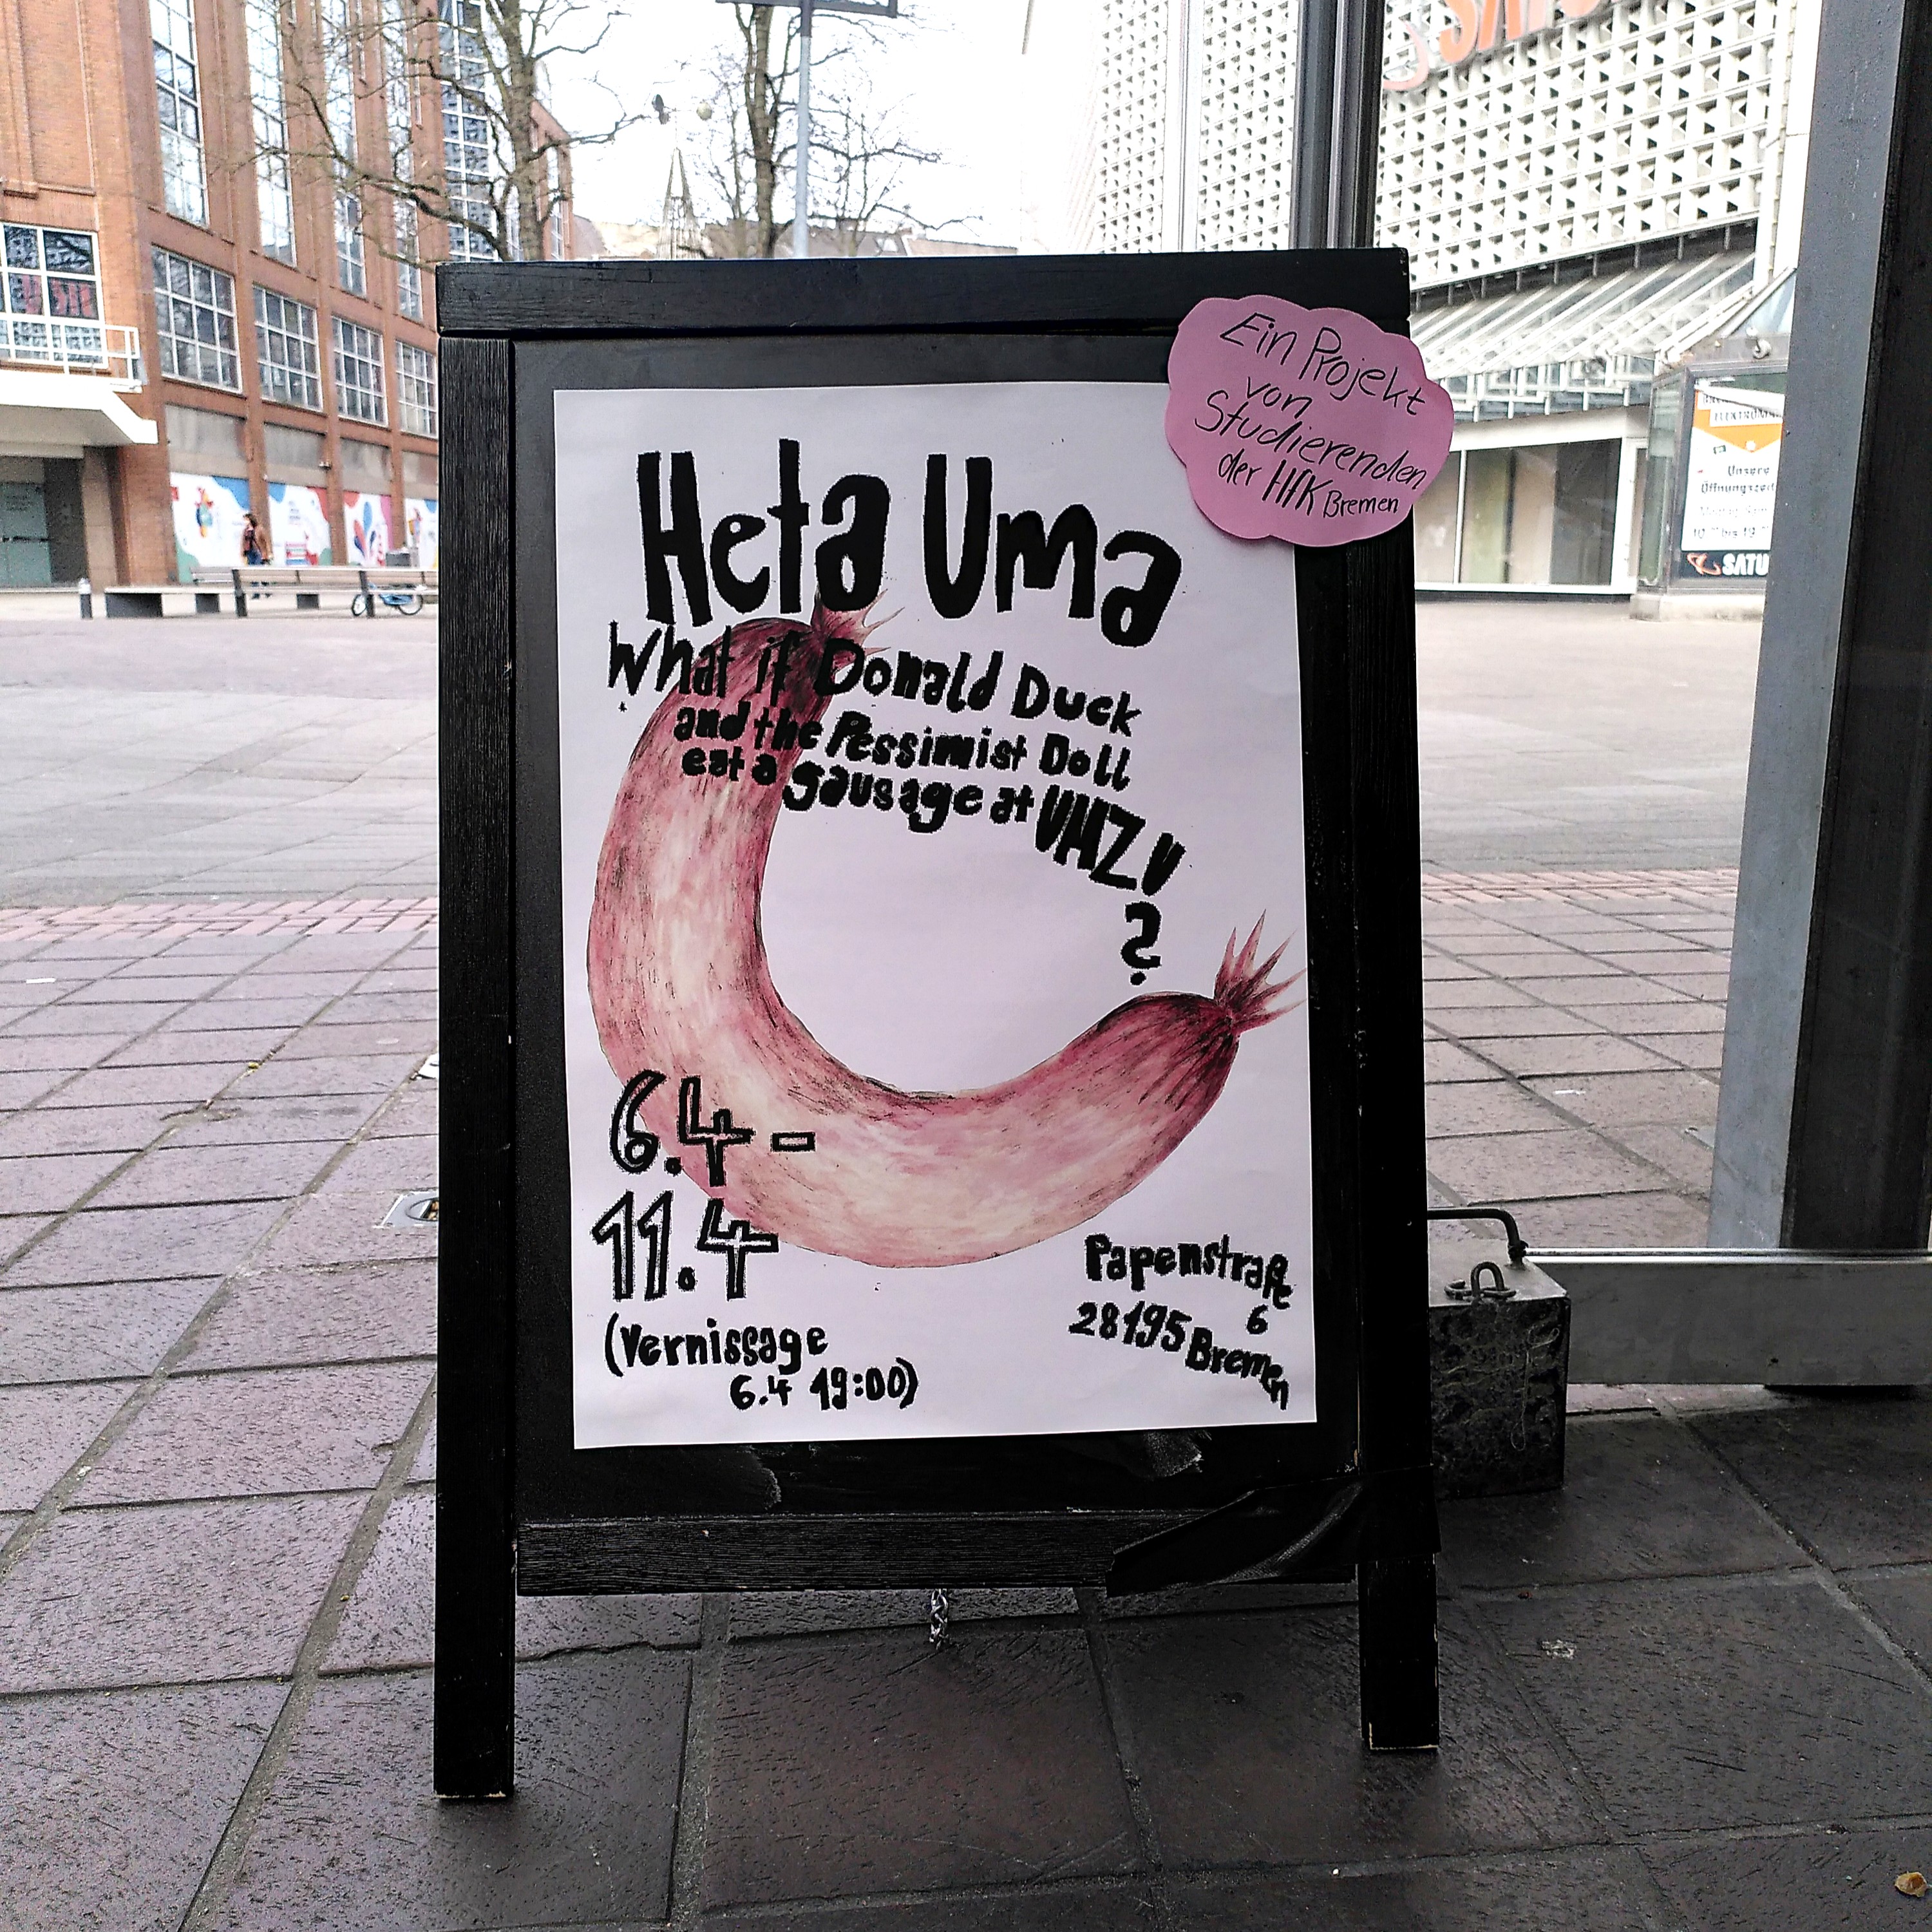 Ein Projekt
von
Studierenden
der HfK Bremen
Heta Uma
What if Donald Duck
and the Pessimist Doll
eat a gausage at
?
6.4 -
11.4
(Vernissage
6.4 19:00)
Papenstraße
6
28195 Bremen
Unsere
SATU